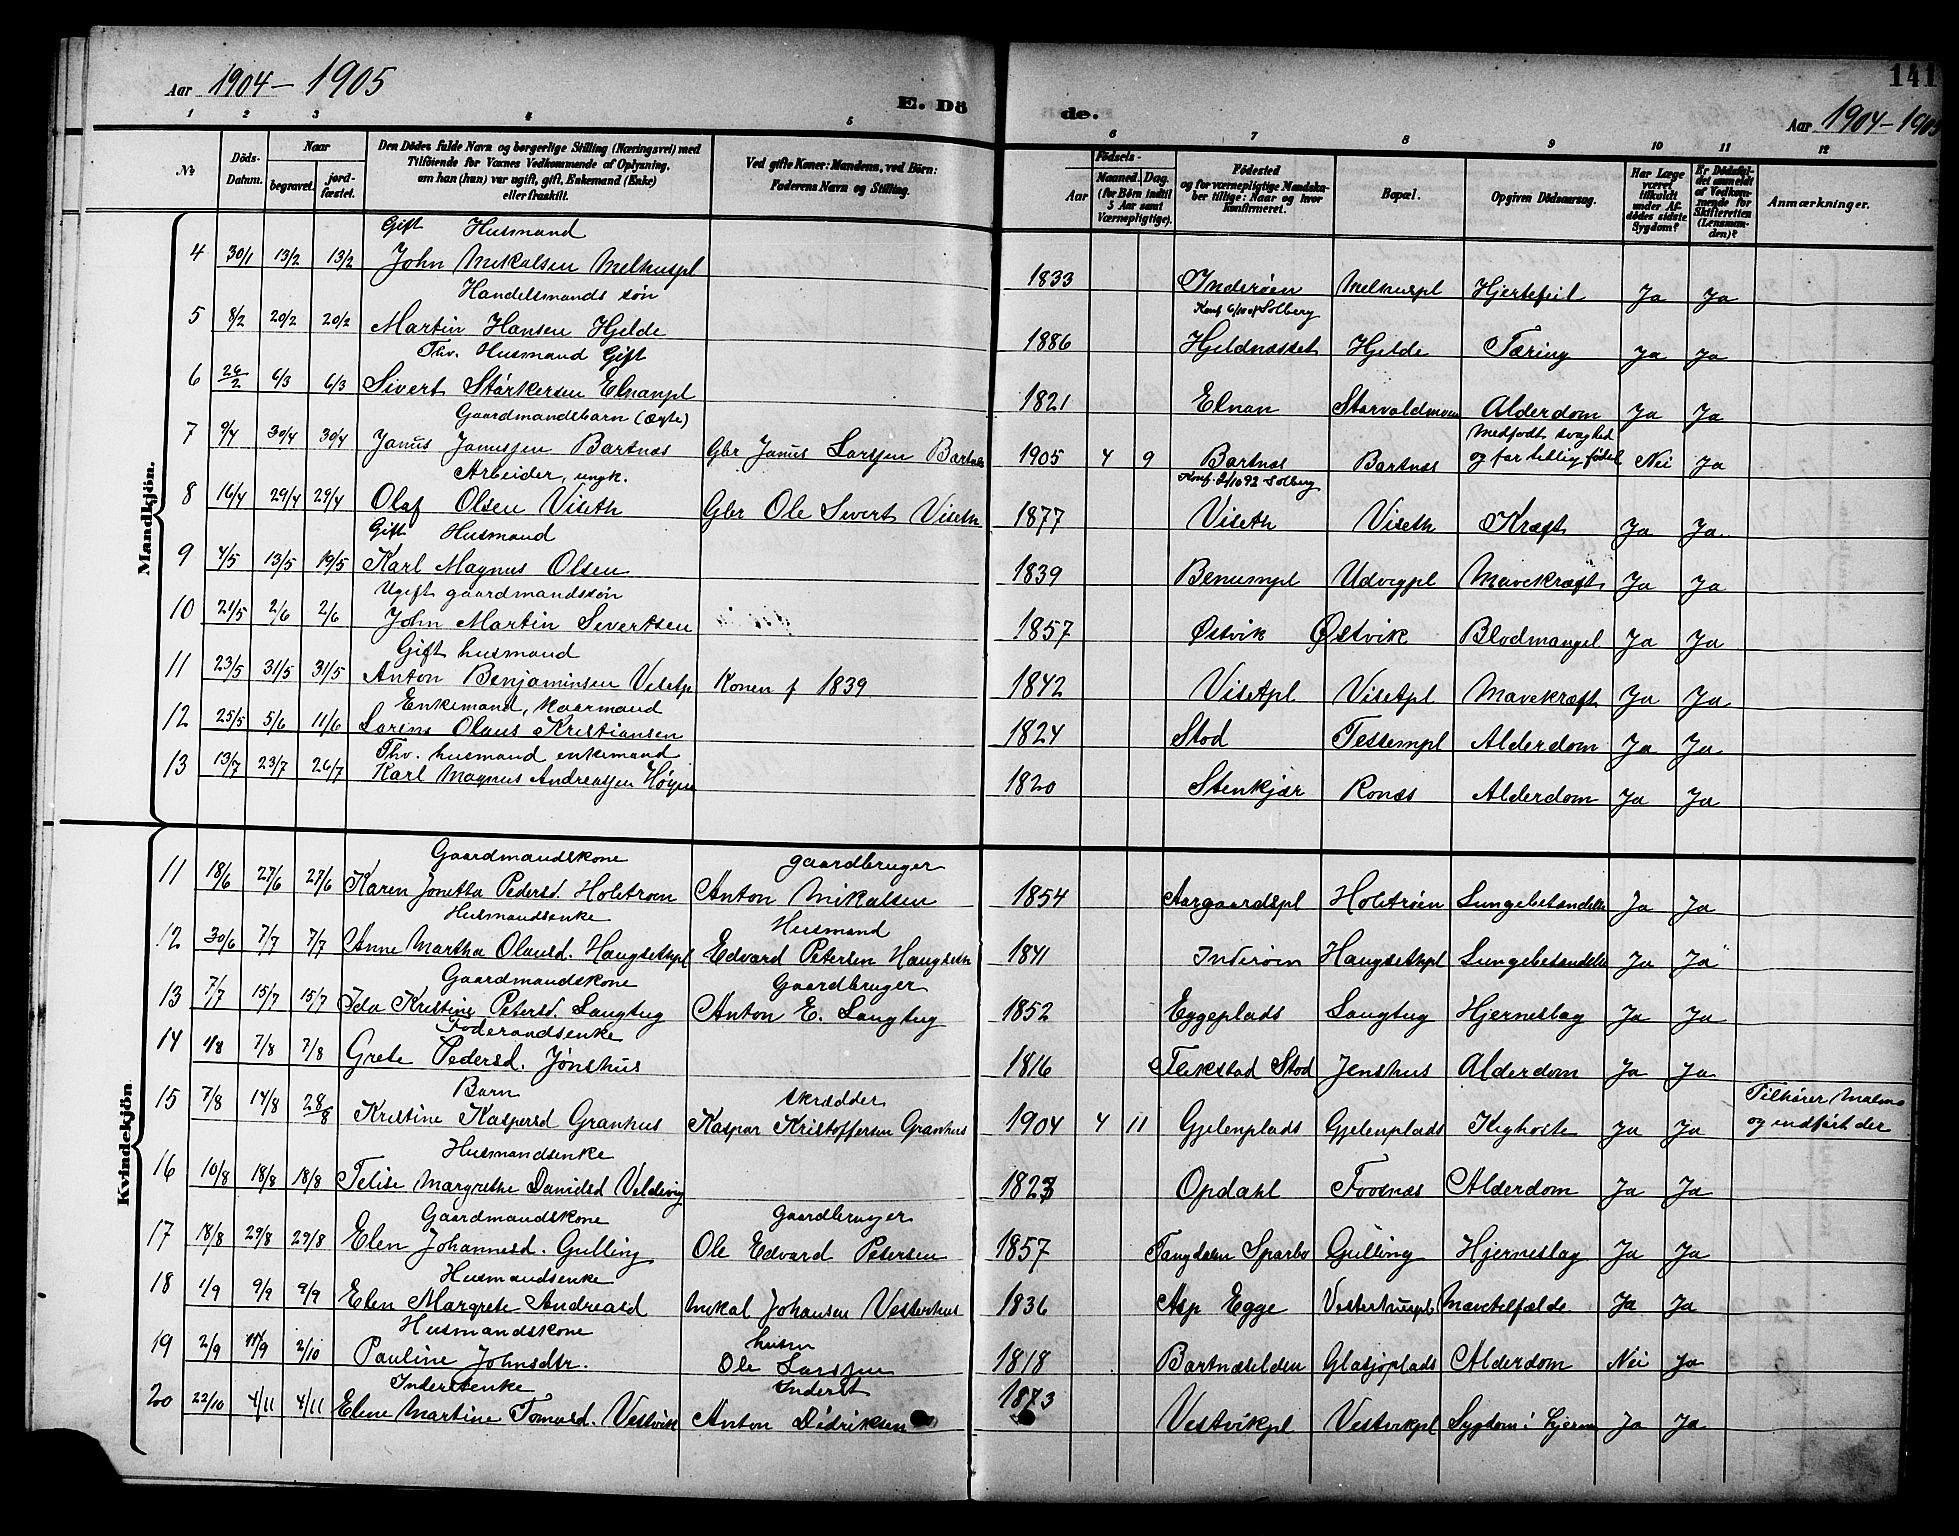 Aar 1904 - 1905
E. Dö
de.
141
Aar 1904-1905
1 2 3 4 5 6 7 8 9 10 11 12
No
Döds-Datum.
Naar
begravet.
jord-fæstet.
Den Dödes fulde Navn og borgerlige Stilling (Næringsvei) med
Tilföiende for Voxnes Vedkommende af Oplysning,
om han (hun) var ugift, gift, Enkemand (Enke)
eller fraskilt.
Ved gifte Koner: Mandens, ved Börn:
Faderens Navn og Stilling.
Födsels-
Aar
Maaned. Dag.
(for Börn indtil
5 Aar samt
Værnepligtige).
Födested
og for værnepligtige Mandska-
ber tillige: Naar og hvor
konfirmeret.
Bopæl.
Opgiven Dödsaarsag.
Har Læge
været
tilkaldt
under Af-
dödes sidste
Sygdom?
Er Dödsfal-
det anmeldt
af Vedkom-
mende for
Skifteretten
(Lensman-
den)?
Anmærkninger.
Mandkjön.
Gift Husmand
4 30/1 13/2 13/2 John Mikalsen Melhuspl 1833 Inderøen Melhuspl Hjertefeil Ja Ja
Handelsmands søn Konf 6/10 01 Solberg
5 8/2 20/2 20/2 Martin Hansen Hjelde 1886 Hjeldnæsset Hjelde Tæring Ja Ja
Fhv. Husmand Gift
6 26/2 6/3 6/3 Sivert Størkersen Elnanpl 1821 Elnan Alderdom Ja Ja
Gaardmandsbarn (ægte) Medfødt svaghed
7 9/4 30/4 30/4 Janus Janussen Bartnes Gbr Janus Larssen Bartnes 1905 4 9 Bartnes Bartnes og for tidlig født Nei Ja
Arbeider, ungk. Konf. 2/10 92 Solberg
8 16/4 29/4 29/4 Olaf Olsen Viseth Gbr Ole Sivert Viseth 1877 Viseth Viseth Kræft Ja Ja
Gift Husmand
9 4/5 13/5 19/5 Karl Magnus Olsen 1839 Benumpl Udvegpl Mavekræft Ja Ja
Ugift gaardmandssøn
10 21/5 2/6 2/6 John Martin Sivertsen 1857 Østvik Østvik Blodmangel Ja Ja
Gift husmand
11 23/5 31/5 31/5 Anton Benjaminsen Visetpl Konen f 1839 1842 Visetpl Visetpl Mavekræft Ja Ja
Enkemand, kaarmand
12 25/5 5/6 11/6 Lorens Olaus Kristiansen 1824 Stod Tessempl Alderdom Ja Ja
Fhv. husmand enkemand
13 13/7 23/7 26/7 Karl Magnus Andreassen 1820 Stenkjær Ronæs Alderdom Ja Ja
Kvindekjön
Gaardmandskone gaardbruger
11 18/6 27/6 27/6 Karen Jonetta Pedersd. Holstrøm Anton Mikalsen 1854 Aargaardspl Holstrøen Lungebetændelse Ja Ja
Husmandsenke Husmand
12 30/6 7/7 7/7 Anne Martha Olausd. Haugsethpl Edvard Petersen Haugseth 1841 Inderøen Haugsethpl Lungebetændelse Ja Ja
Gaardmandskone Gaardbruger
13 7/7 15/7 15/7 Ida Kristine Petersd. Langtug Anton E. Langtug 1852 Eggeplads Langtug Hjerneslag Ja Ja
Foderaadsenke
14 1/8 7/8 7/8 Grete Pedersd. Jønshus 1816 Flekstad Stod Jenshus Alderdom Ja Ja
Barn skrædder Tilhører Malmo
15 7/8 14/8 28/8 Kristine Kaspersd Granhus Kaspar Kristoffersen Granhus 1904 4 11 Gjelenplads Gjelenplads Kighoste Ja Ja og indført der
Husmandsenke
16 10/8 18/8 18/8 Margrethe Danielsd 1823 Opdahl Alderdom Ja Ja
Gaardmandskone Gaardbruger
17 18/8 29/8 29/8 Elen Johannesd. Gulling Ole Edvard Petersen 1857 Tangdalen Sparbo Gulling Hjerneslag Ja Ja
Husmandsenke
18 1/9 9/9 9/9 Elen Margrete Andreasd Mikal Johansen Vesterhus 1836 Asp Egge Vesterhuspl Mavetilfælde Ja Ja
Husmandskone husm
19 2/9 11/9 2/10 Pauline Johnsdtr. Ole Larssen 1818 Bartnæseiden Glasjøplads Alderdom Nei Ja
Inderstenke Inderst
20 22/10 4/11 4/11 Elene Martine Tomasd. Vestvik Anton Didriksen 1873 Vestvikpl Vestvikpl Sygdom i hjernen Ja Ja